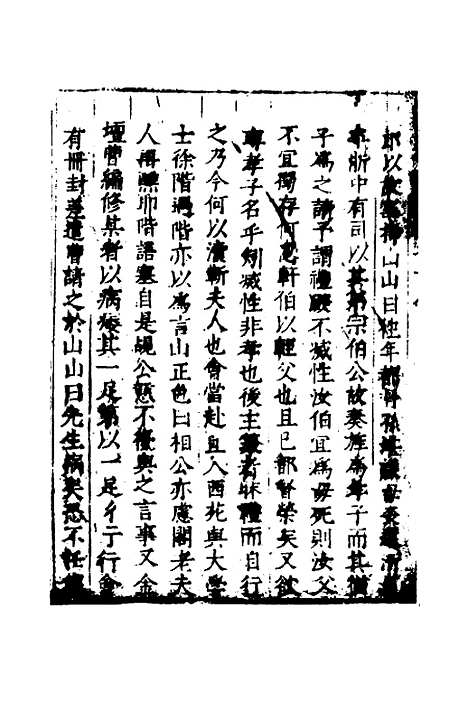 以故山曰往年都督孫堪
浙中有司以其弟宗伯公故奏旌為孝子而其
子為之請予謂禮毀不滅性汝伯宜為母死則汝父
不宜獨存何忍軒伯以輕父也且已都督榮矣又欲
專孝子名乎矧滅性非孝也後主者昧禮而自行
之乃今何以瀆靳夫人也會當赴直入西苑與大學
士徐階遇階亦以為言山正色曰相公亦慮閣老夫
人再醮耶階語塞自是覘公意不復與之言事又金
壇曹編修某者以病痿其一足第以一足彳亍行會
有冊封差遣曹請之於山山曰先生病矣恐不任